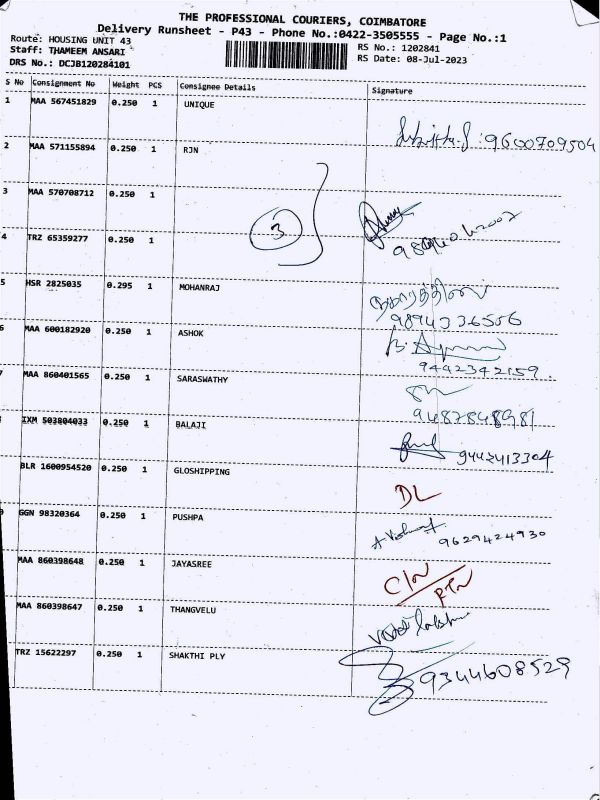 THE PROFESSIONAL COURIERS, COIMBATORE
Delivery Runsheet - P43 - Phone No.:0422-3505555 - Page No.:1
Route: HOUSING UNIT 43 RS No.: 1202841
Staff: THAMEEM ANSARI RS Date: 08-Jul-2023
DRS No.: DCJB120284101
S No Consignment No Weight PCS Consignee Details Signature
1 MAA 567451829 0.250 1 UNIQUE
9600709504
2 MAA 571155894 0.250 1 RJN
3 MAA 570708712 0.250 1
3
4 TRZ 65359277 0.250 1
5 HSR 2825035 0.295 1 MOHANRAJ
9894336556
6 MAA 600182920 0.250 1 ASHOK
9442342159.
MAA 860401565 0.250 1 SARASWATHY
9487848981
IXM 503804033 0.250 1 BALAJI
9442413304
BLR 1600954520 0.250 1 GLOSHIPPING
DL
GGN 98320364 0.250 1 PUSHPA
9629424930
MAA 860398648 0.250 1 JAYASREE
MAA 860398647 0.250 1 THANGVELU
TRZ 15622297 0.250 1 SHAKTHI PLY
9344608529